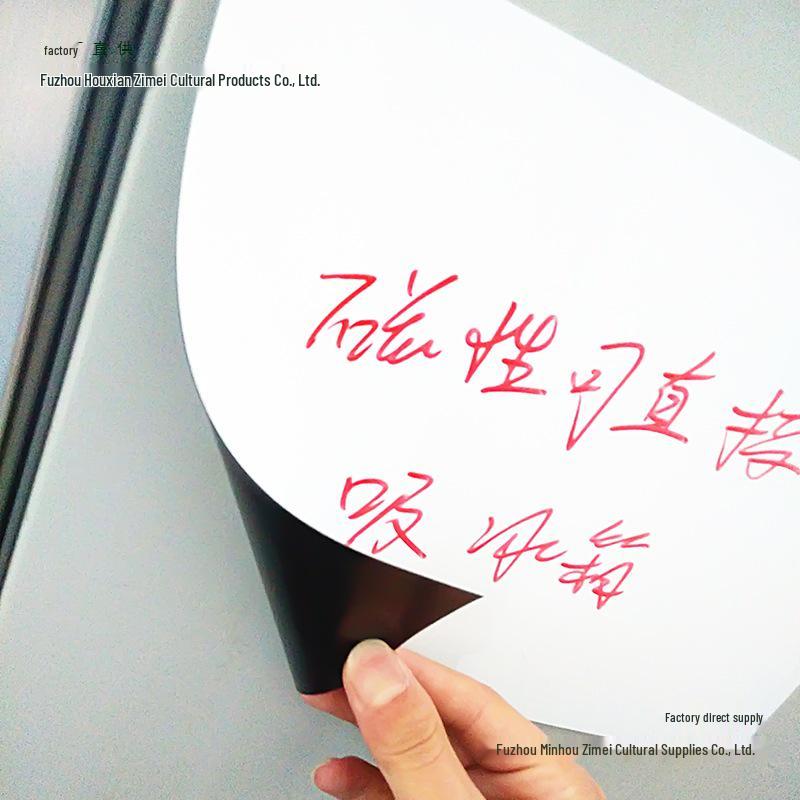 factory 直供
Fuzhou Houxian Zimei Cultural Products Co., Ltd.
磁性可直接
吸冰箱
Factory direct supply
Fuzhou Minhou Zimei Cultural Supplies Co., Ltd.